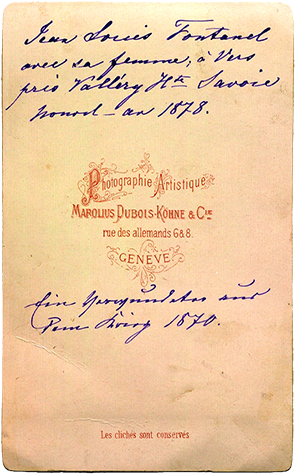 Jean Louis Fontanel
avec sa femme, à Vers
près Valléry Hte Savoie
nouvel-an 1878.
Photographie Artistique
MAROLIUS DUBOIS-KÖHNE & CIE
rue des allemands 6&8.
GENÈVE
Ein Verwundeter aus
Dem Krieg 1870.
Les clichés sont conservés